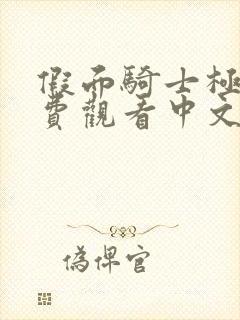 假面騎士極
費觀看中文
偽俾官